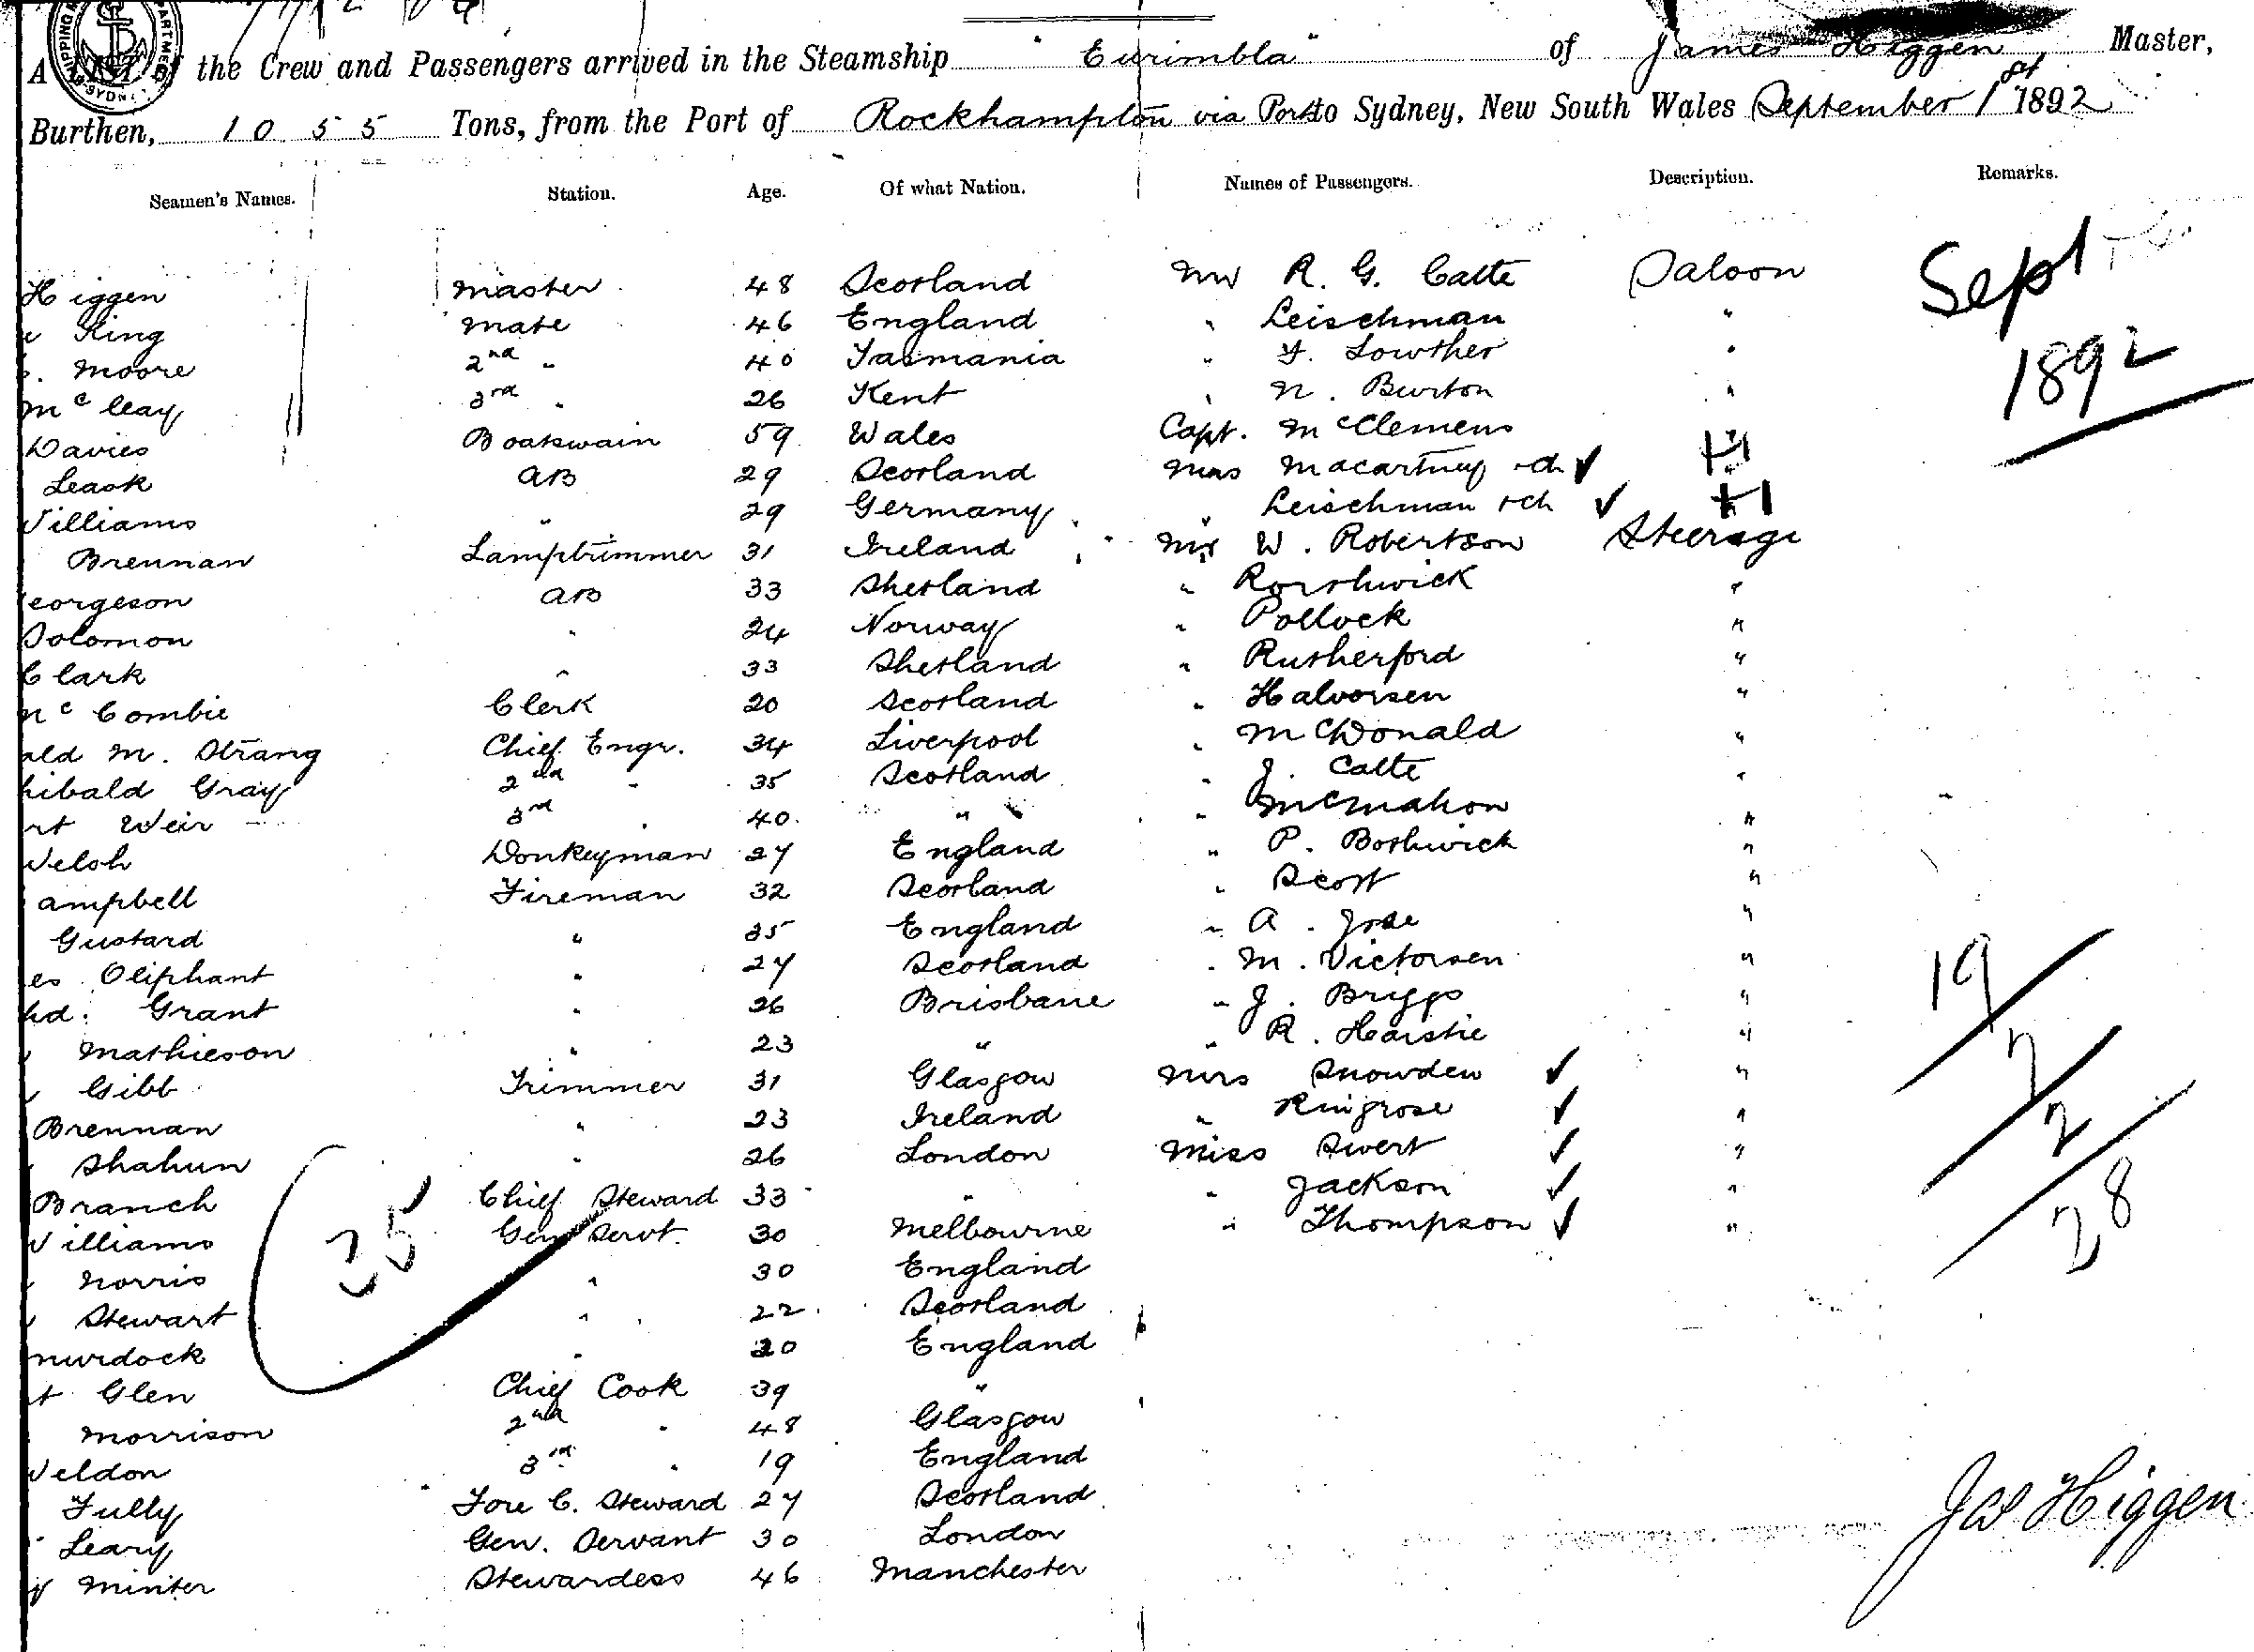 A List of the Crew and Passengers arrived in the Steamship "Eurimbla" of James Higgen, Master,
Burthen, 1055 Tons, from the Port of Rockhampton via Ports to Sydney, New South Wales September 1st 1892
Seamen's Names. Station. Age. Of what Nation. Names of Passengers. Description. Remarks.
Higgen Master 48 Scotland Mr R. G. Catte Saloon Sept
King Mate 46 England " Leischman "
Moore 2nd " 40 Tasmania " Lowther " 1892
McCleay 3rd " 26 Kent " N. Burton "
Davies Boatswain 59 Wales Capt. McClemens
Leask AB 29 Scotland Mrs Macartney + ch ✓
Williams " 29 Germany " Leischman + ch ✓
Brennan Lamptrimmer 31 Ireland Mr W. Robertson Steerage
eorgeson AB 33 Shetland " Rorthwick "
Solomon " 24 Norway " Pollock "
Clark " 33 Shetland " Rutherford "
McCombie Clerk 20 Scotland " Halvorsen "
ald M. Strang Chief Engr. 34 Liverpool " McDonald "
hibald Gray 2nd " 35 Scotland " J. Catte "
rt Weir 3rd " 40 " " McMahon "
Welsh Donkeyman 27 England " P. Borthwick "
ampbell Fireman 32 Scotland " Scott "
Gustard " 35 England " A. Jose "
es Oliphant " 27 Scotland " M. Victorsen "
hd. Grant " 26 Brisbane " J. Briggs " 19
Mathieson " 23 " " R. Hairstie "
Gibb Trimmer 31 Glasgow Mrs Snowden ✓ " 7
Brennan " 23 Ireland " Ringrose ✓ " 2
Shahun " 26 London Miss Swert ✓ "
Branch Chief Steward 33 " " Jackson ✓ " 28
Williams Gen Servt. 30 Melbourne " Thompson ✓ "
35
Norris " 30 England
Stewart " 22 Scotland
Murdock " 20 England
t Glen Chief Cook 39 "
Morrison 2nd " 48 Glasgow
Weldon 3rd " 19 England
Tully Fore C. Steward 27 Scotland
Leary Gen. Servant 30 London
y Minter Stewardess 46 Manchester
Jas Higgen